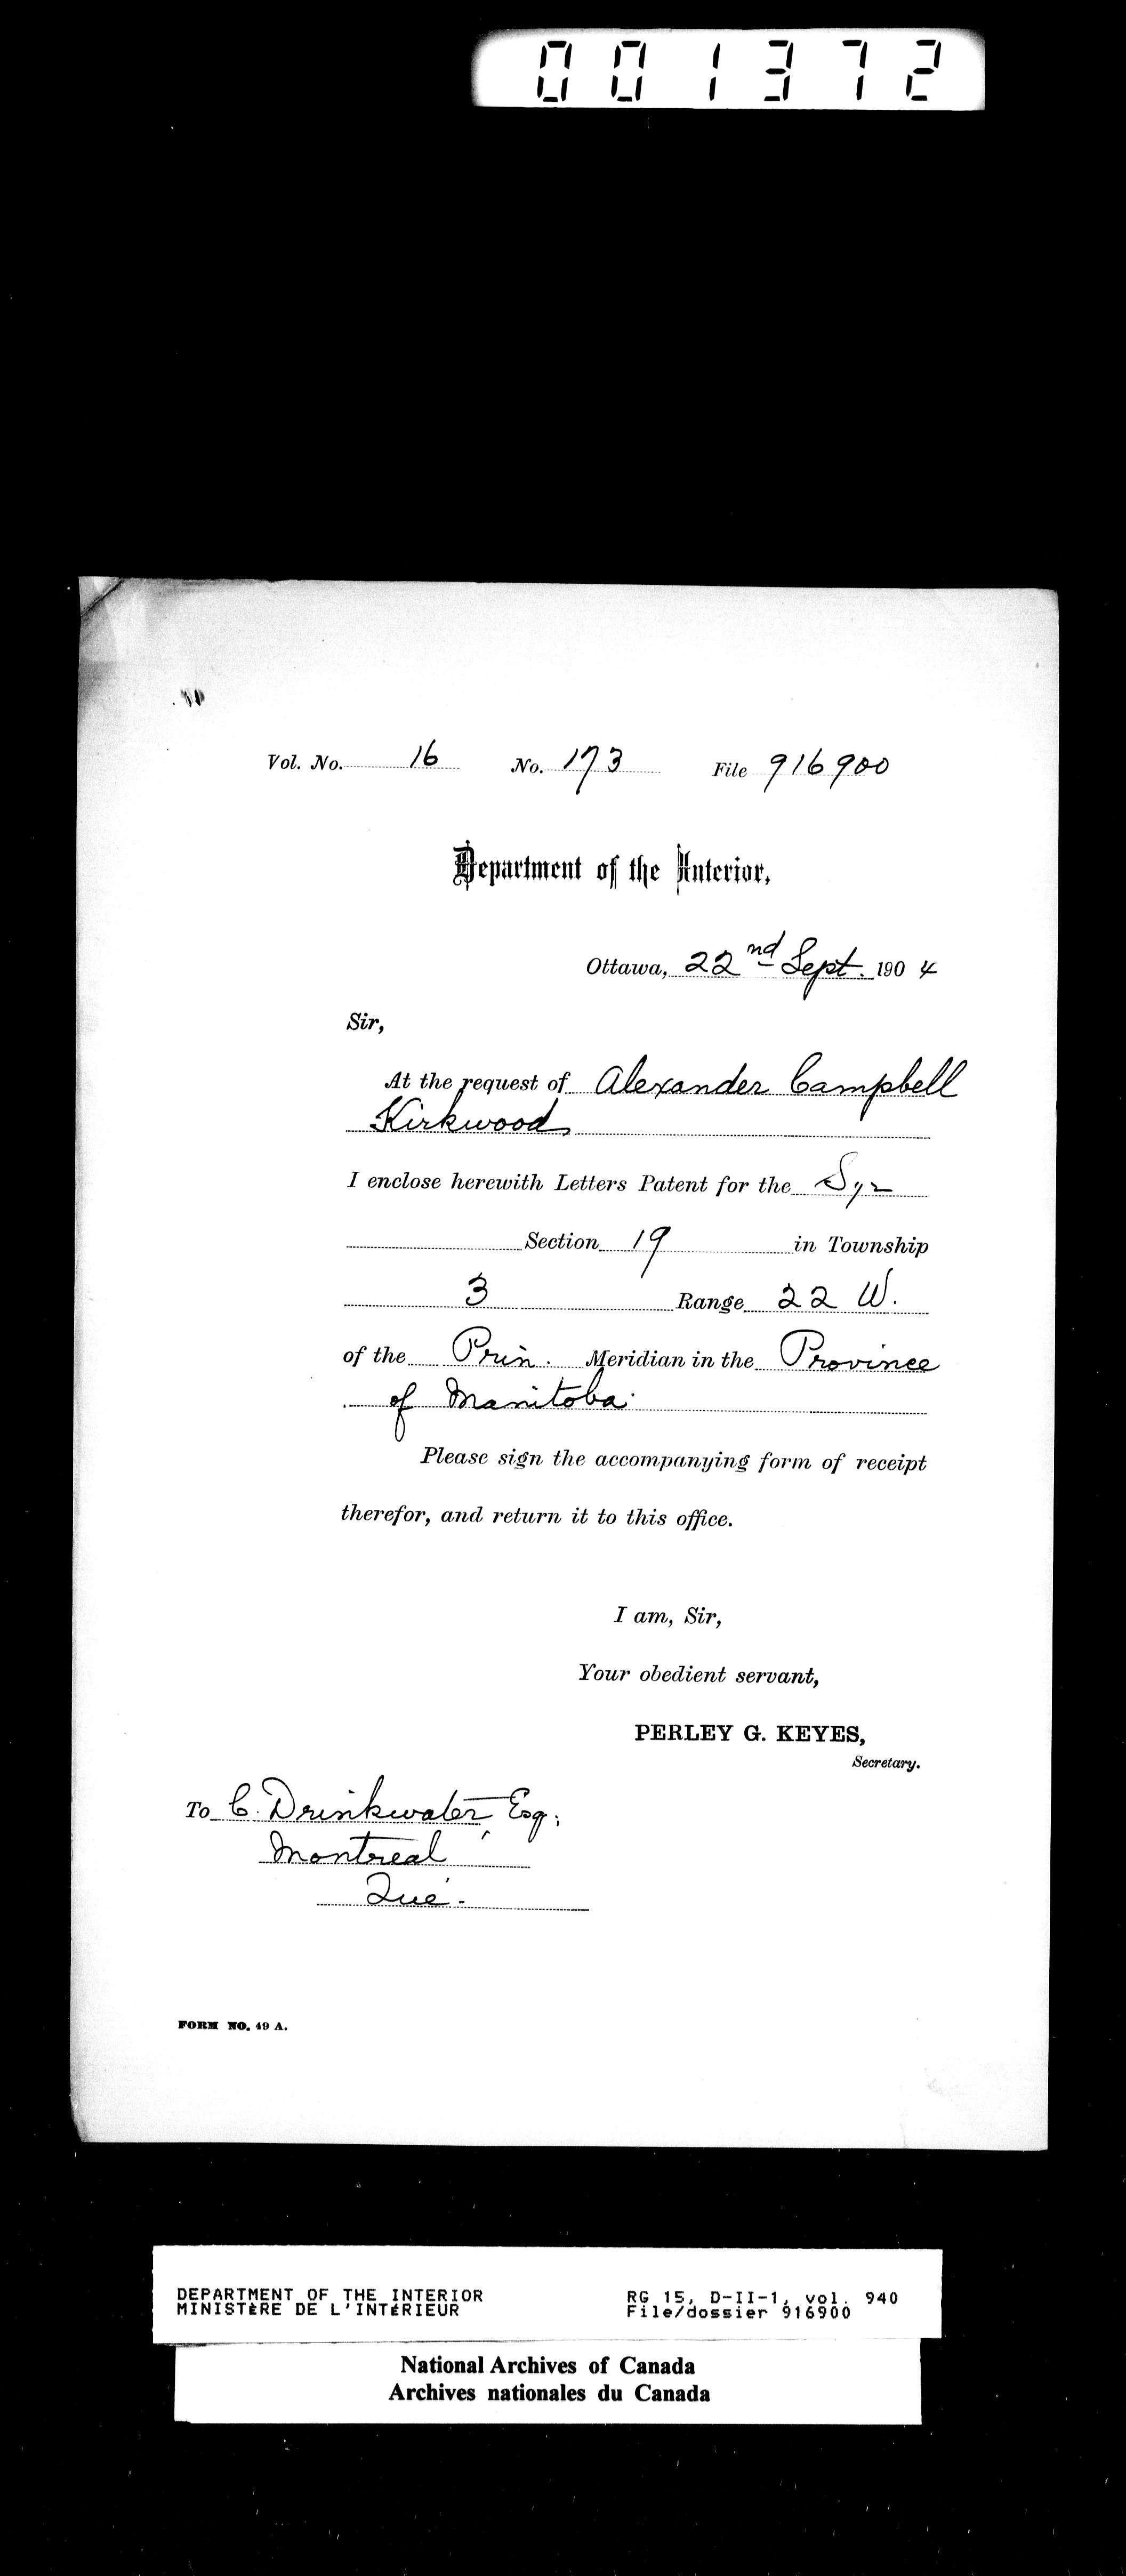 001372
Vol. No. 16 No. 173 File 916900
Department of the Interior,
Ottawa, 22nd Sept. 1904
Sir,
At the request of Alexander Campbell
Kirkwood,
I enclose herewith Letters Patent for the S 1/2
Section 19 in Township
3 Range 22 W.
of the Prin. Meridian in the Province
of Manitoba.
Please sign the accompanying form of receipt
therefor, and return it to this office.
I am, Sir,
Your obedient servant,
PERLEY G. KEYES,
Secretary.
To C. Drinkwater, Esq;
Montreal,
Que.
FORM NO. 49 A.
DEPARTMENT OF THE INTERIOR RG 15, D-II-1, vol. 940
MINISTÈRE DE L'INTÉRIEUR File/dossier 916900
National Archives of Canada
Archives nationales du Canada